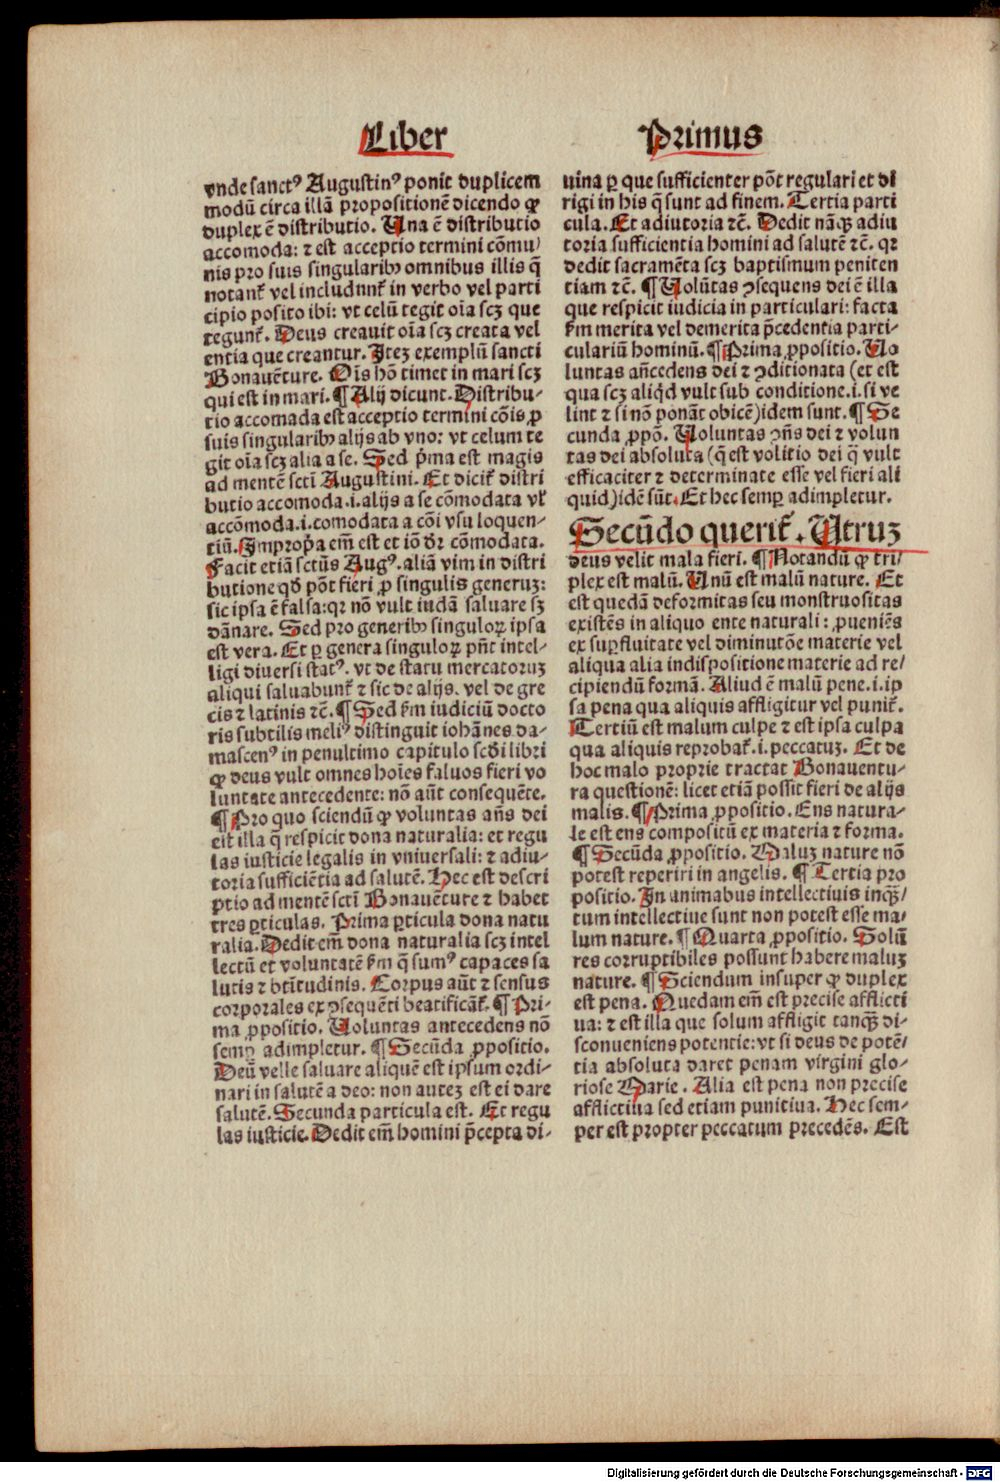 Liber Primus
vnde sanctꝰ Augustinꝰ ponit duplicem
modū circa illā propositionē dicendo ꝙ
duplex ē distributio. Una ē distributio
accomoda: ⁊ est acceptio termini cōmu/
nis pro suis singularibꝫ omnibus illis q̄
notant᷑ vel includnnt᷑ in verbo vel parti
cipio posito ibi: vt celū tegit oīa scꝫ que
tegunt᷑. Deus creauit oīa scꝫ creata vel
entia que creantur. Iteꝫ exemplū sancti
Bonauēture. Oīs hō timet in mari scꝫ
qui est in mari. ¶ Alij dicunt. Distribu-
tio accomada est acceptio termini cōis ꝓ
suis singularibꝫ alijs ab vno: vt celum te
git oīa scꝫ alia a se. Sed p̄ma est magis
ad mentē scti Augustini. Et dicit᷑ distri
butio accomoda.i.alijs a se cōmodata vl᷑
accōmoda.i.comodata a cōi vsu loquen-
tiū. Impropa em̄ est et iō dr̄ cōmodata.
Facit etiā sctūs Augꝰ. aliā vim in distri
butione qd̄ pōt fieri ꝓ singulis generuꝫ:
sic ipsa ē falsa: qꝛ nō vult iudā saluare sꝫ
dānare. Sed pro generibꝫ singuloꝝ ipsa
est vera. Et ꝑ genera singuloꝝ pn̄t intel-
ligi diuersi statꝰ. vt de statu mercatoruꝫ
aliqui saluabunt᷑ ⁊ sic de alijs. vel de gre
cis ⁊ latinis ⁊c̄. ¶ Sed fm̄ iudiciū docto
ris subtilis meliꝰ distinguit iohānes da-
mascenꝰ in penultimo capitulo scd̄i libri
ꝙ deus vult omnes hoīes saluos fieri vo
luntate antecedente: nō aūt consequēte.
¶ Pro quo sciendū ꝙ voluntas an̄s dei
est illa q̄ respicit dona naturalia: et regu
las iusticie legalis in vniuersali: ⁊ adiu-
toria sufficiētia ad salutē. Hec est descri
ptio ad mentē sctī Bonauēture ⁊ habet
tres ꝑticulas. Prima ꝑticula dona natu
ralia. Dedit em̄ dona naturalia scꝫ intel
lectū et voluntatē fm̄ q̄ sumꝰ capaces sa
lutis ⁊ btītudinis. Corpus aūt ⁊ sensus
corporales ex ꝯsequēti beatificāt᷑. ¶ Pri-
ma ꝓpositio. Uoluntas antecedens nō
semꝑ adimpletur. ¶ Secūda ꝓpositio.
Deū velle saluare aliquē est ipsum ordi-
nari in salutē a deo: non auteꝫ est ei dare
salutē. Secunda particula est. Et regu
las iusticie. Dedit em̄ homini p̄cepta di-
uina ꝑ que sufficienter pōt regulari et di
rigi in his q̄ sunt ad finem. Tertia parti
cula. Et adiutoria ⁊c̄. Dedit nāqꝫ adiu
toria sufficientia homini ad salutē ⁊c̄. qꝛ
dedit sacramēta scꝫ baptismum peniten
tiam ⁊c̄. ¶ Uolūtas ꝯsequens dei ē illa
que respicit iudicia in particulari: facta
fm̄ merita vel demerita p̄cedentia parti-
culariū hominū. ¶ Prima ꝓpositio. Uo
luntas an̄cedens dei ⁊ ꝯditionata (et est
qua scꝫ aliqd vult sub conditione.i.si ve
lint ⁊ si nō ponāt obicē) idem sunt. ¶ Se
cunda ꝓpō. Uoluntas ꝯn̄s dei ⁊ volun
tas dei absoluta (q̄ est volitio dei q̄ vult
efficaciter ⁊ determinate esse vel fieri ali
quid) idē sūt. Et hec semꝑ adimpletur.
Secūdo querit᷑. Utruꝫ
deus velit mala fieri. ¶ Notandū ꝙ tri/
plex est malū. Unū est malū nature. Et
est quedā deformitas seu monstruositas
existēs in aliquo ente naturali: ꝓueniēs
ex suꝑfluitate vel diminutōe materie vel
aliqua alia indispositione materie ad re/
cipiendū formā. Aliud ē malū pene.i.ip
sa pena qua aliquis affligitur vel punit᷑.
Tertiū est malum culpe ⁊ est ipsa culpa
qua aliquis reprobat᷑.i.peccatuꝫ. Et de
hoc malo proprie tractat Bonauentu-
ra questionē: licet etiā possit fieri de alijs
malis. ¶ Prima ꝓpositio. Ens natura-
le est ens compositū ex materia ⁊ forma.
¶ Secūda ꝓpositio. Maluꝫ nature nō
potest reperiri in angelis. ¶ Tertia pro
positio. In animabus intellectiuis inqꝫ̄/
tum intellectiue sunt non potest esse ma-
lum nature. ¶ Quarta ꝓpositio. Solū
res corruptibiles possunt habere maluꝫ
nature. ¶ Sciendum insuper ꝙ duplex
est pena. Quedam em̄ est precise afflicti
ua: ⁊ est illa que solum affligit tanqꝫ̄ di-
sconueniens potentie: vt si deus de potē/
tia absoluta daret penam virgini glo-
riose Marie. Alia est pena non precise
afflictiua sed etiam punitiua. Hec sem-
per est propter peccatum precedēs. Est
Digitalisierung gefördert durch die Deutsche Forschungsgemeinschaft - DFG